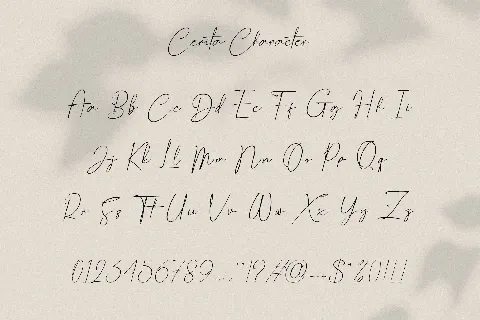 Cerita Character
Aa Bb Cc Dd Ee Ff Gg Hh Ii
Jj Kk Ll Mm Nn Oo Pp Qq
Rr Ss Tt Uu Vv Ww Xx Yy Zz
0123456789